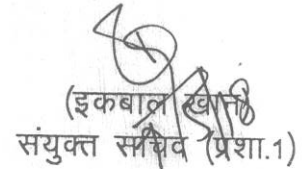 (इकबाल खान)
संयुक्त सचिव (प्रशा.1)